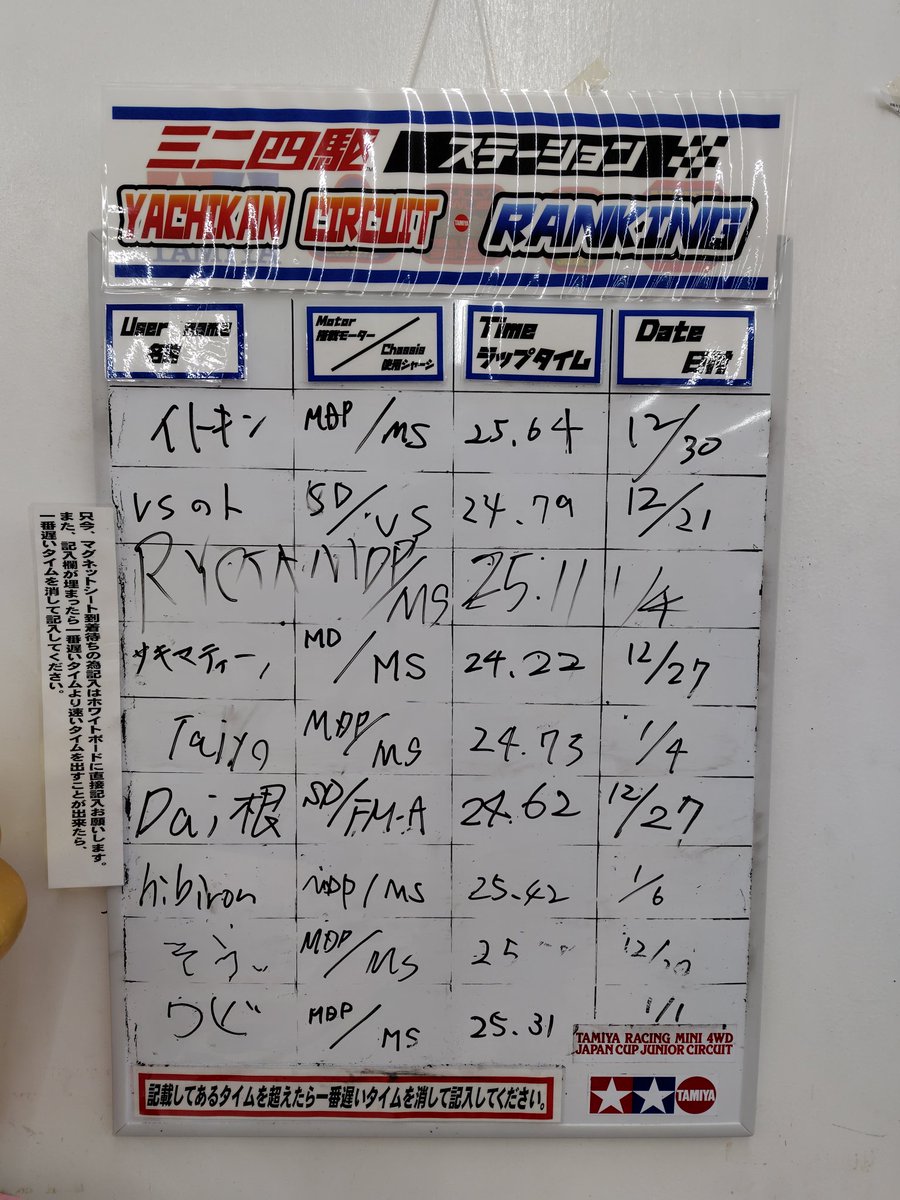 ミニ四駆 ステーション
YACHIKAN CIRCUIT · TAMIYA RANKING
User name
名前
Motor
搭載モーター
Chassis
使用シャーシ
Time
ラップタイム
Date
日付
イトーキン MDP/MS 25.64 12/30
VSのト SD/VS 24.79 12/21
RYOTA MDP/MS 25.11 1/4
サキマティーノ MD/MS 24.22 12/27
Taiyo MDP/MS 24.73 1/4
Dai根 SD/FM-A 24.62 12/27
hibiron MDP/MS 25.42 1/6
そう MDP/MS 25 12/
つじ MDP/MS 25.31 1/1
TAMIYA RACING MINI 4WD
JAPAN CUP JUNIOR CIRCUIT
記載してあるタイムを超えたら一番遅いタイムを消して記入してください。
TAMIYA
只今、マグネットシート到着待ちの為記入はホワイトボードに直接記入お願いします。
また、記入欄が埋まったら一番遅いタイムより速いタイムを出すことが出来たら、
一番遅いタイムを消して記入してください。